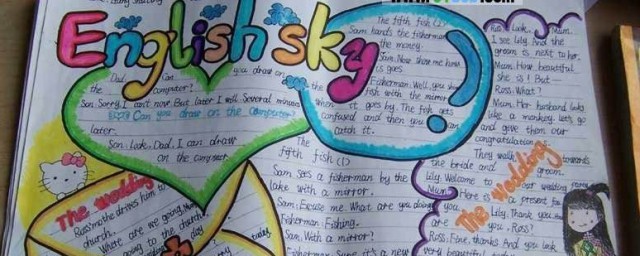 English sky
Dad. Can
you draw on
the computer?
Son. Sorry, I can't now. But later I will. Several minutes
Can you draw on the computer?
later.
Son: Look, Dad. I can draw
on the computer
The fifth fish (2)
Sam hands the fisherman
the money.
Sam. Now show me how
is goes
Fisherman: Well, you show
fish with the mirror
when it goes by. The fish gets
confused and then you can
catch it.
The
fifth fish (1)
Sam sees a fisherman by the
lake with a mirror.
Sam: Excuse me. What are you doing
Fisherman: Fishing.
Sam. With a mirror?
Fisherman: Sure it's a new
The wedding
Ross mother drives him to
church.
Where are we going, Mum
going to the church
day
today
Look, Mum.
I see Lily. And the
groom is next to her.
Mum. How beautiful
she is! But
Ross. What?
Mum. Her husband looks
like a monkey. Let's go
and give them our
congratulation.
They walk towards
the bride and groom.
Lily. Welcome to our wedding
Mum. Here is a present for
Lily. Thank you
are you, Ross?
Ross. Fine, thanks. And you look
very beautiful
The wedding.